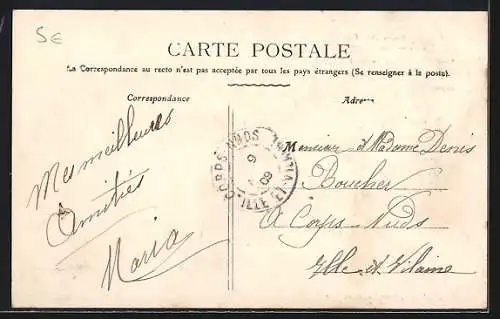 5€
CARTE POSTALE
La Correspondance au recto n'est pas acceptée par tous les pays étrangers (Se renseigner à la poste).
Correspondance
Adresse
Mes meilleures
Amitiés
Maria
CORPS-NUDS
9
09
ILLE-ET-VILAINE
Monsieur et Madame Denis
Boucher
A Corps Nuds
Ille et Vilaine